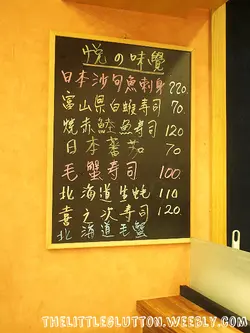 悅の味覺
日本沙甸魚刺身 220.
富山県白蝦寿司 70
燒赤鯥魚寿司 120
日本蕃茄 70
毛蟹寿司 100.
北海道生蚝 110
喜之次寿司 120
北海道毛蟹
THELITTLEGLUTTON.WEEBLY.COM